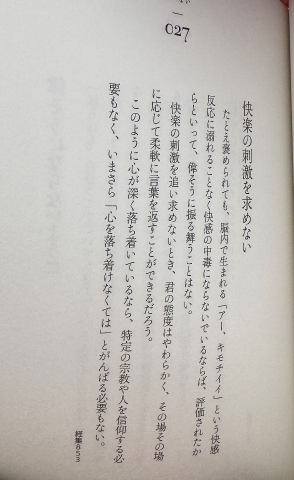 027
快楽の刺激を求めない
たとえ褒められても、脳内で生まれる「アー、キモチイイ」という快感
反応に溺れることなく快感の中毒にならないでいるならば、評価されたか
らといって、偉そうに振る舞うことはない。
快楽の刺激を追い求めないとき、君の態度はやわらかく、その場その場
に応じて柔軟に言葉を返すことができるだろう。
このように心が深く落ち着いているなら、特定の宗教や人を信仰する必
要もなく、いまさら「心を落ち着けなくては」とがんばる必要もない。
経集853